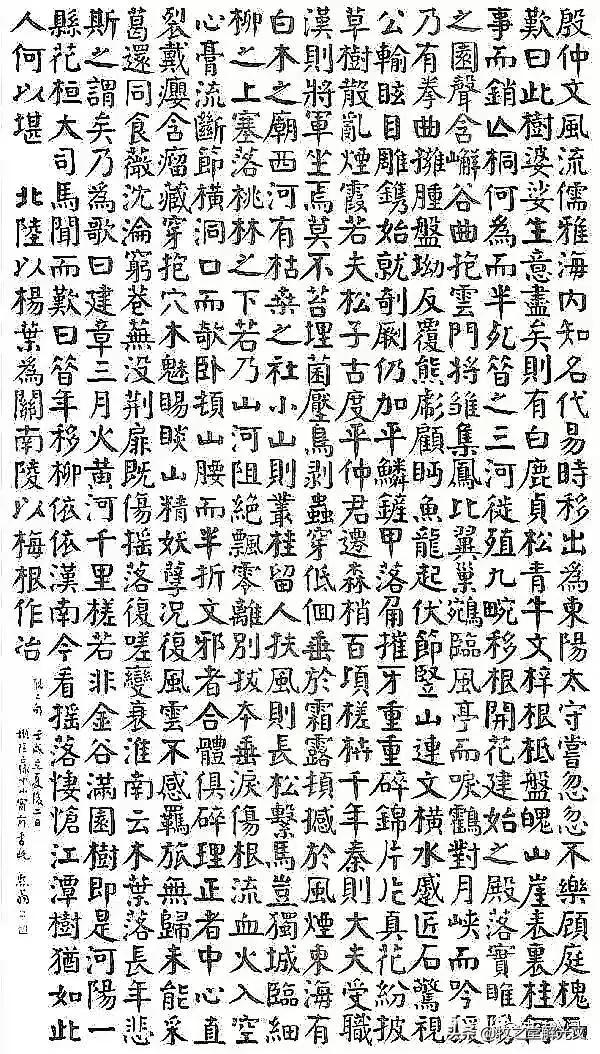 殷仲文風流儒雅海內知名代易時移出為東陽太守嘗忽忽不樂顧庭槐而
歎曰此樹婆娑生意盡矣則有白鹿貞松青牛文梓根柢盤魄山崖表裏桂何
事而銷亡桐何為而半死昔之三河徙殖九畹移根開花建始之殿落實睢陽
之園聲含嶰谷曲抱雲門將雛集鳳比翼巢鵷臨風亭而唳鶴對月峽而吟猨
乃有拳曲擁腫盤坳反覆熊彪顧盻魚龍起伏節豎山連文橫水蹙匠石驚視
公輸眩目雕鐫始就剞劂仍加平鱗鏟甲落角摧牙重重碎錦片片真花紛披
草樹散亂煙霞若夫松子古度平仲君遷森梢百頃槎枿千年秦則大夫受職
漢則將軍坐焉莫不苔埋菌壓鳥剝蟲穿低佪垂於霜露頓撼於風煙東海有
白木之廟西河有枯桑之社小山則叢桂留人扶風則長松繫馬豈獨城臨細
柳之上塞落桃林之下若乃山河阻絕飄零離別拔本垂淚傷根流血火入空
心膏流斷節橫洞口而欹臥頓山腰而半折文邪者合體俱碎理正者中心直
裂戴癭含瘤藏穿抱穴木魅睗睒山精妖孽況復風雲不感羈旅無歸未能采
葛還同食薇沈淪窮巷蕪沒荊扉既傷搖落復嗟變衰淮南云木葉落長年悲
斯之謂矣乃為歌曰建章三月火黃河千里槎若非金谷滿園樹即是河陽一
縣花桓大司馬聞而歎曰昔年移柳依依漢南今看搖落悽愴江潭樹猶如此
人何以堪 北陸以楊葉為關南陵以梅根作冶